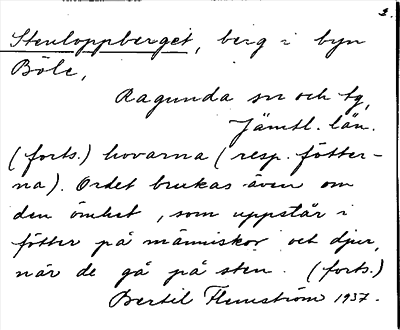 3.
Stenloppberget, berg i byn
Böle,
Ragunda sn och tg,
Jämtl. län.
(forts.) hovarna (resp. fötter-
na). Ordet brukas även om
den ömhet, som uppstår i
fötter på människor och djur,
när de gå på sten. (forts.)
Bertil Flemström 1937.